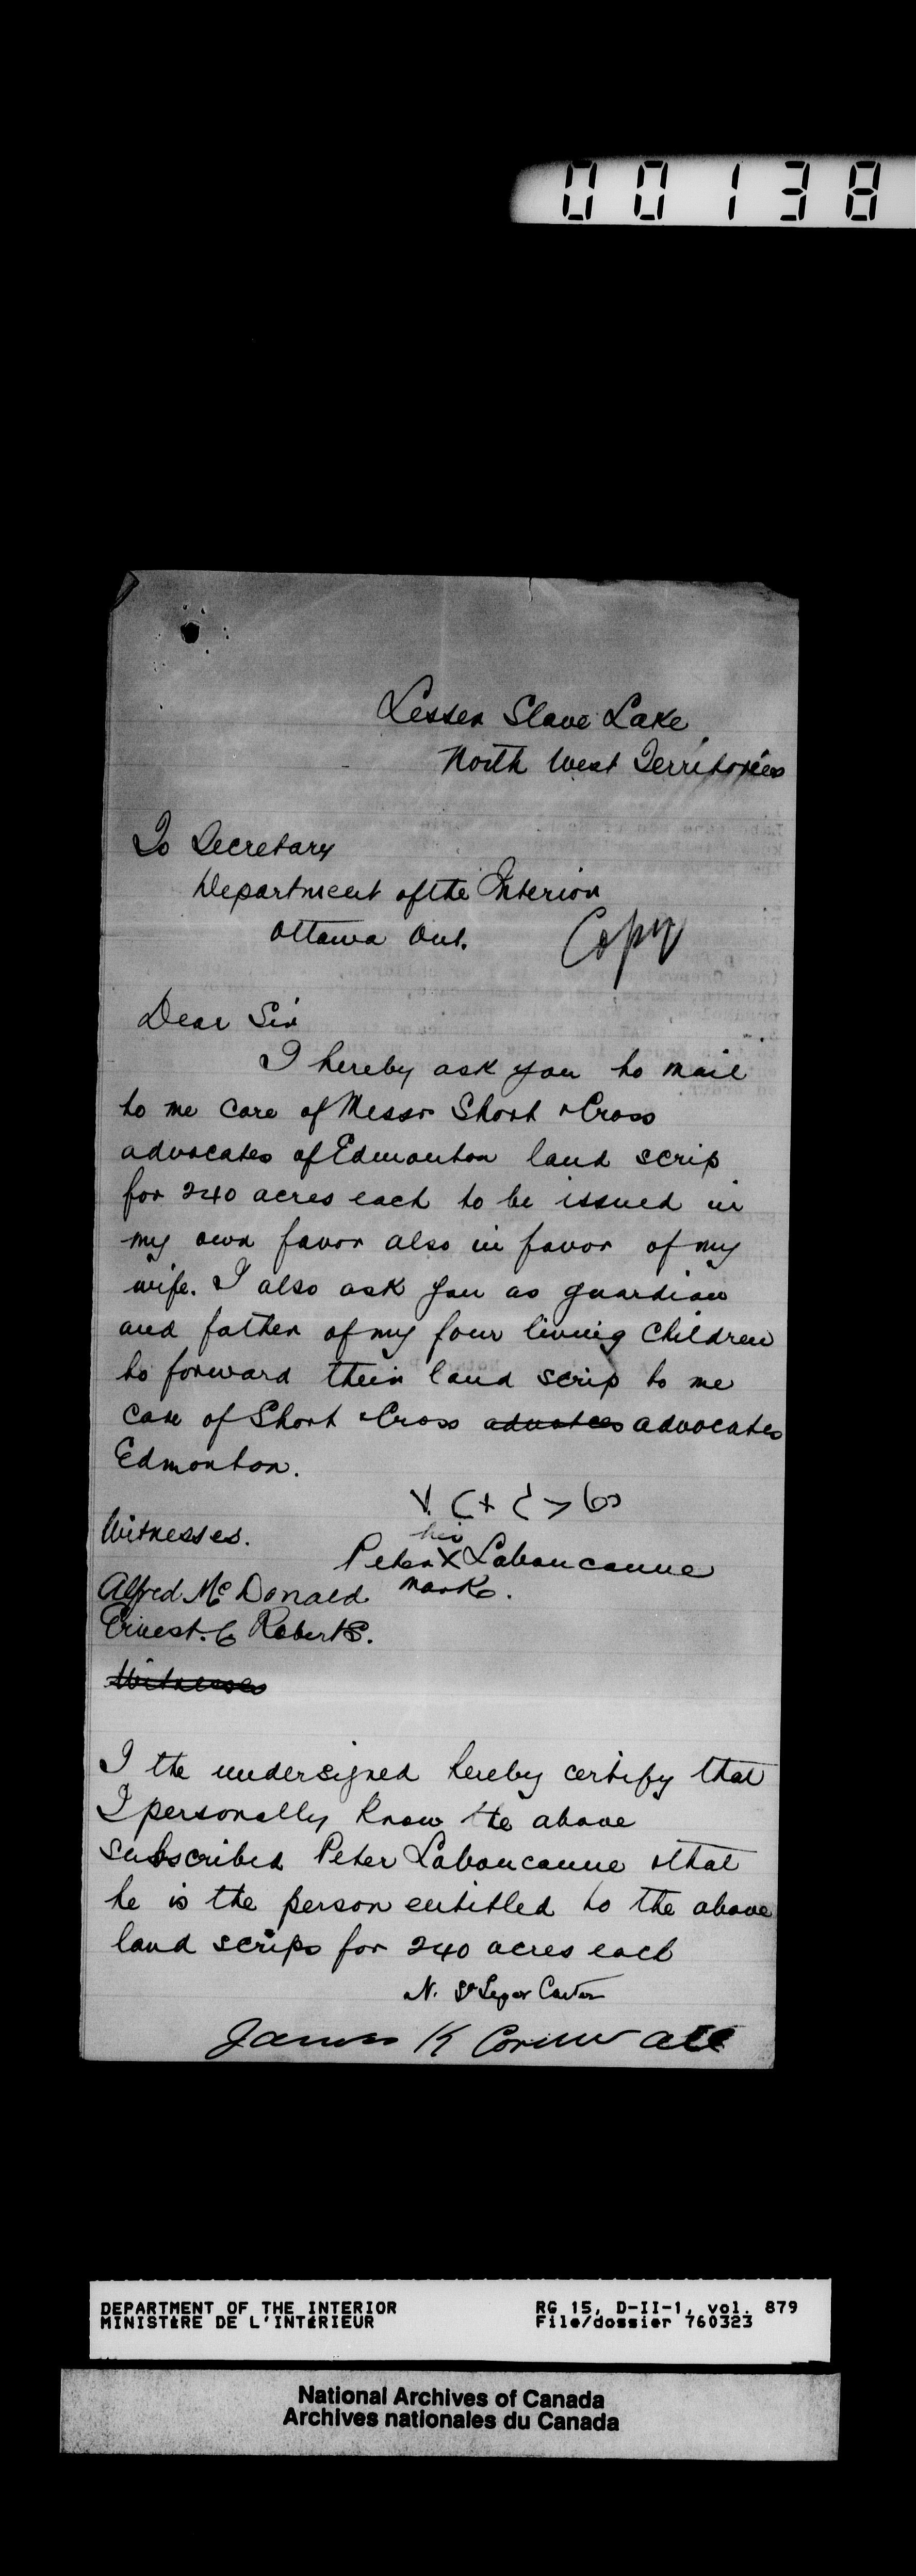 00138
Lesser Slave Lake
North West Territories
To Secretary
Department of the Interior
Ottawa Ont.
Copy
Dear Sir
I hereby ask you to mail
to me care of Messr Short & Cross
advocates of Edmonton land scrip
for 240 acres each to be issued in
my own favor also in favor of my
wife. I also ask you as guardian
and father of my four living children
to forward their land scrip to me
care of Short & Cross advocates
Edmonton.
Witnesses.
his
Peter X Laboucanne
mark.
Alfred McDonald
Ernest. C Roberts.
Witnesses
I the undersigned hereby certify that
I personally know the above
subscribed Peter Laboucanne & that
he is the person entitled to the above
land scrips for 240 acres each
N. St Leger Carter
James K Cornwall
DEPARTMENT OF THE INTERIOR
MINISTÈRE DE L'INTÉRIEUR
RG 15, D-II-1, vol. 879
File/dossier 760323
National Archives of Canada
Archives nationales du Canada